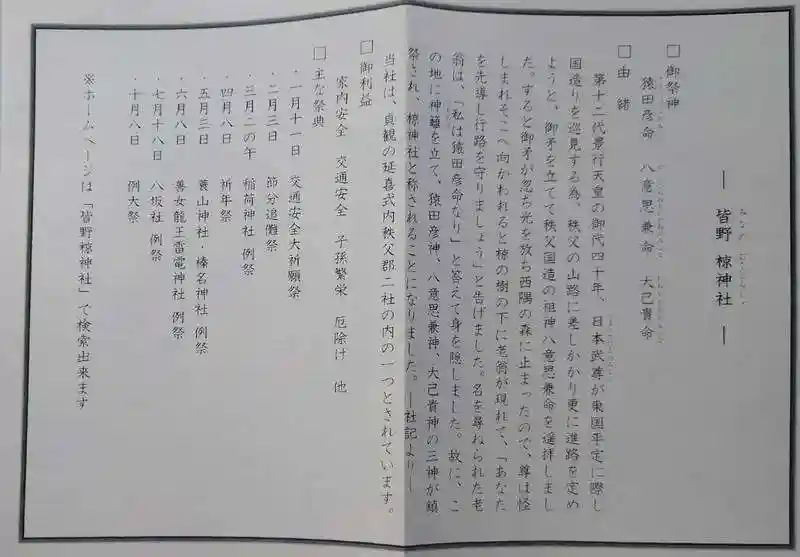 ― 皆野 椋神社 ―
□ 御祭神
猿田彦命 八意思兼命 大己貴命
□ 由緒
第十二代景行天皇の御代四十年、日本武尊が東国平定に際し
国造りを巡見する為、秩父の山路に差しかかり更に進路を定め
ようと、御矛を立てて秩父国造の祖神八意思兼命を遥拝しまし
た。すると御矛が忽ち光を放ち西隅の森に止まったので、尊は怪
しまれそこへ向かわれると椋の樹の下に老翁が現れて、「あなた
を先導し行路を守りましょう」と告げました。名を尋ねられた老
翁は、「私は猿田彦命なり」と答えて身を隠しました。故に、こ
の地に神籬を立て、猿田彦神、八意思兼神、大己貴神の三神が鎮
祭され、椋神社と称されることになりました。―社記より―
当社は、貞観の延喜式内秩父郡二社の内の一つとされています。
□ 御利益
家内安全 交通安全 子孫繁栄 厄除け 他
□ 主な祭典
・一月十一日 交通安全大祈願祭
・二月三日 節分追儺祭
・三月二の午 稲荷神社 例祭
・四月八日 祈年祭
・五月三日 蓑山神社・榛名神社 例祭
・六月八日 善女龍王雷電神社 例祭
・七月十八日 八坂社 例祭
・十月八日 例大祭
※ホームページは「皆野椋神社」で検索出来ます